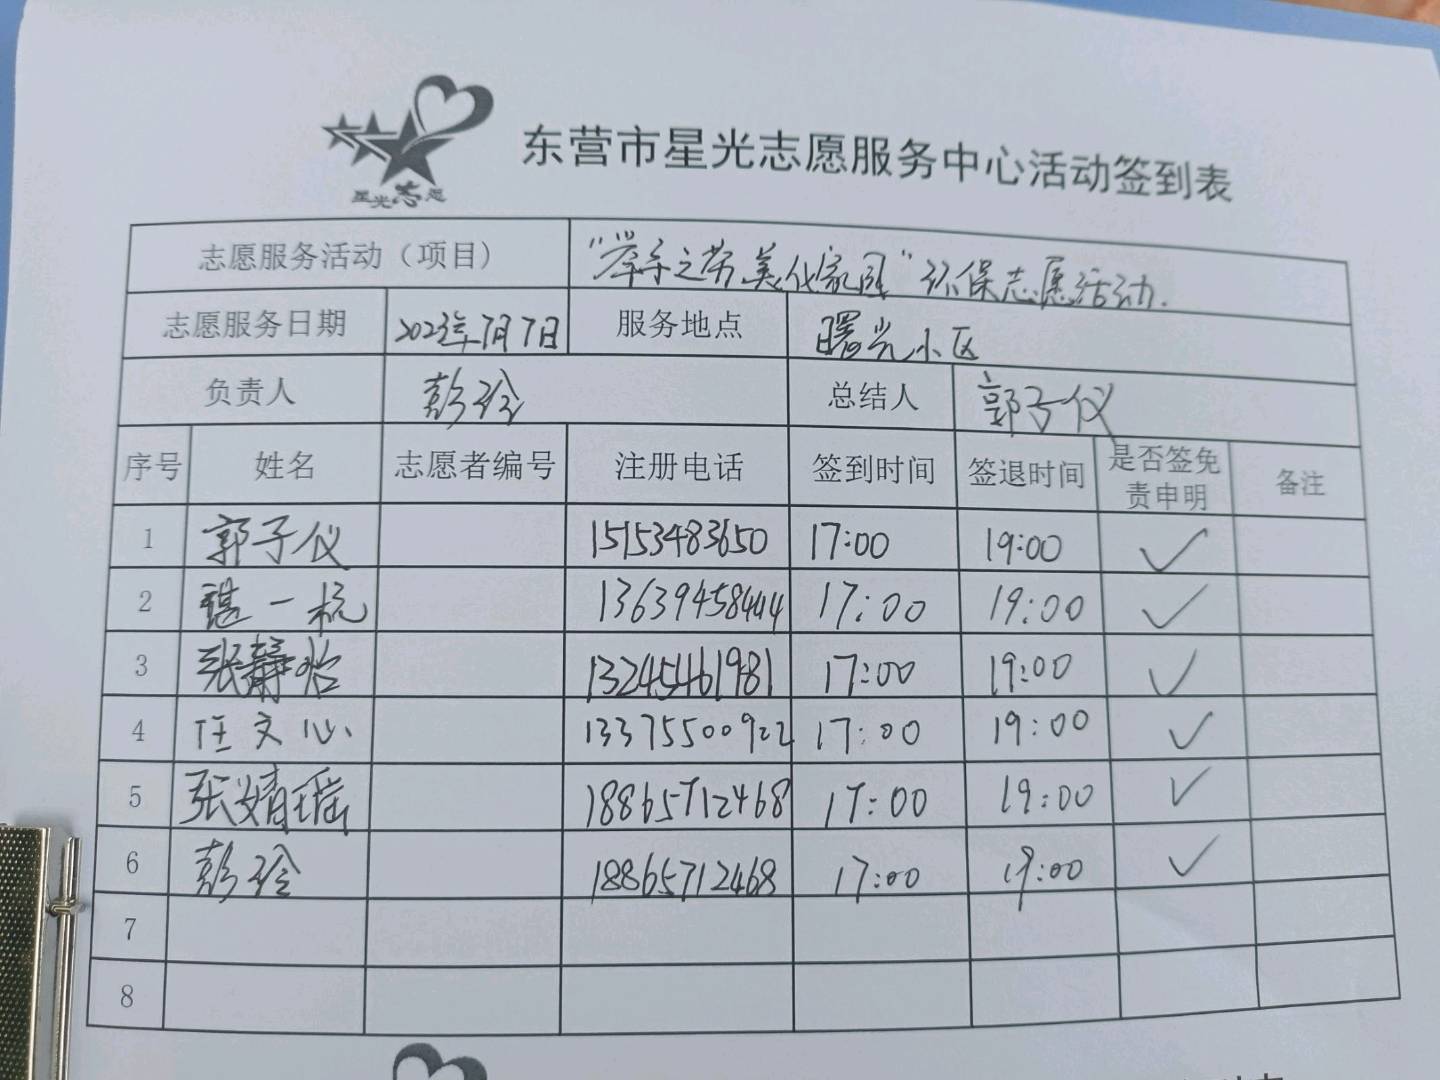 星光志愿
东营市星光志愿服务中心活动签到表
志愿服务活动（项目） “举手之劳美化家园”环保志愿活动.
志愿服务日期 2023年7月7日 服务地点 曙光小区
负责人 彭玲 总结人 郭子仪
序号 姓名 志愿者编号 注册电话 签到时间 签退时间 是否签免责申明 备注
1 郭子仪 15153483650 17:00 19:00 ✓
2 一杭 13639458444 17:00 19:00 ✓
3 张静怡 13245461981 17:00 19:00 ✓
4 任文心 13375500922 17:00 19:00 ✓
5 张婧瑶 18865712468 17:00 19:00 ✓
6 彭玲 18865712468 17:00 19:00 ✓
7
8